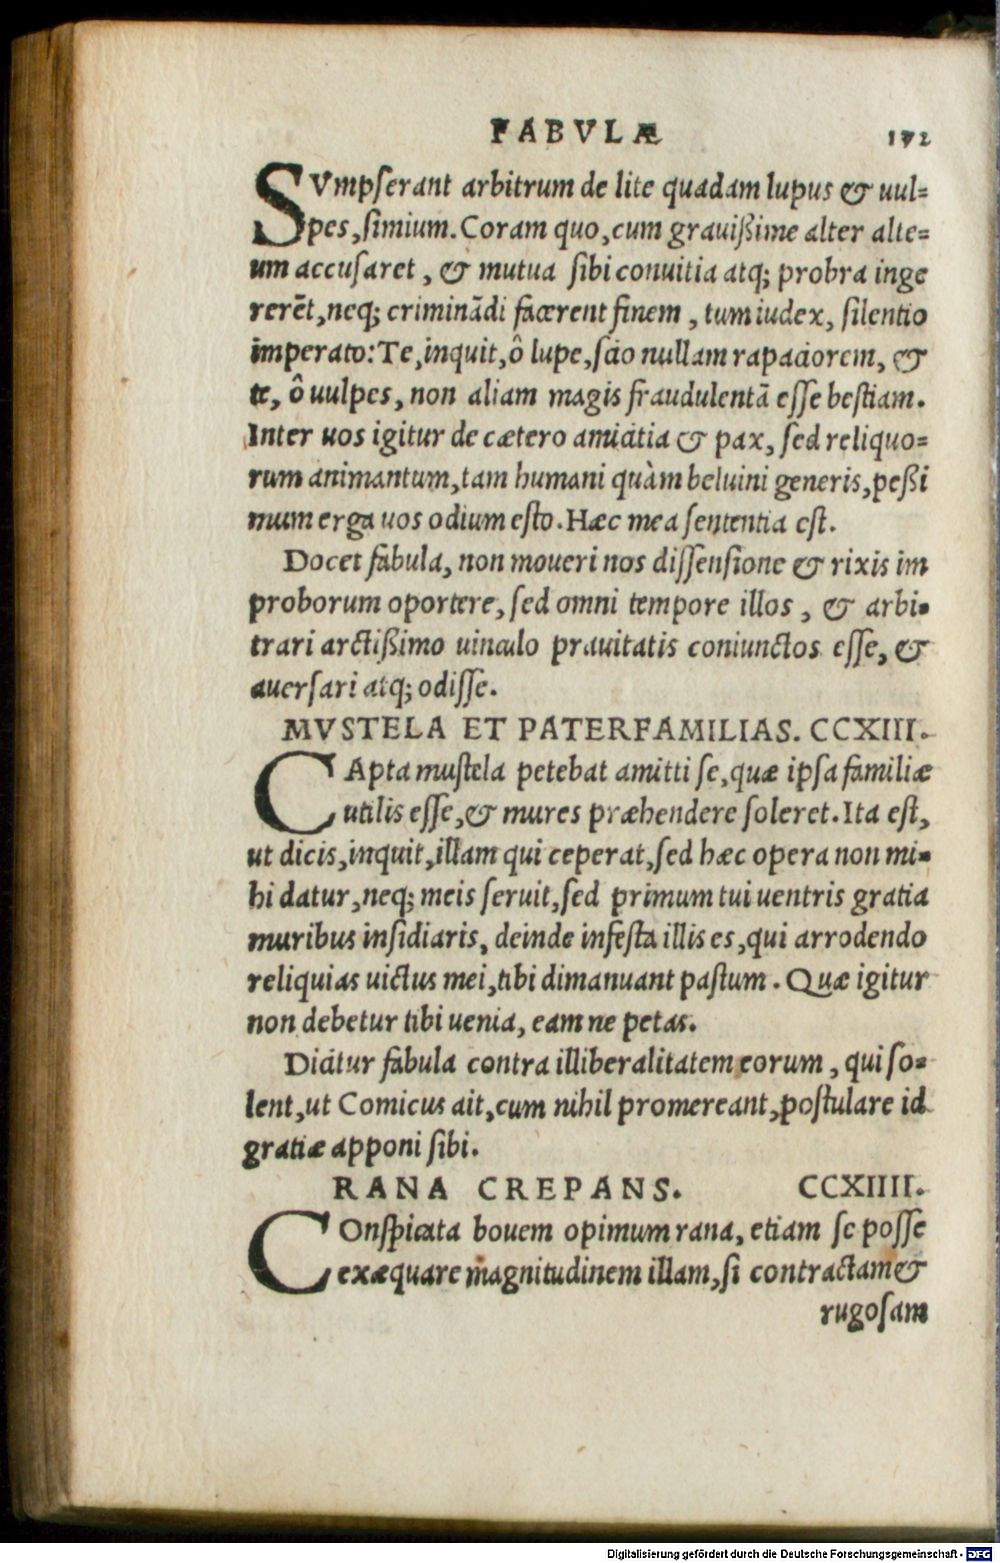 FABVLÆ 172
SVmpſerant arbitrum de lite quadam lupus & uul=
pes, ſimium. Coram quo, cum grauißime alter alte=
um accuſaret, & mutua ſibi conuitia atq; probra inge
rerēt, neq; criminādi facerent finem, tum iudex, ſilentio
imperato: Te, inquit, ô lupe, ſcio nullam rapaciorem, &
te, ô uulpes, non aliam magis fraudulentā eſſe beſtiam.
Inter uos igitur de cætero amicitia & pax, ſed reliquo=
rum animantum, tam humani quàm beluini generis, peßi
mum erga uos odium eſto. Hæc mea ſententia eſt.
Docet fabula, non moueri nos diſſenſione & rixis im
proborum oportere, ſed omni tempore illos, & arbi=
trari arctißimo uinculo prauitatis coniunctos eſſe, &
auerſari atq; odiſſe.
MVSTELA ET PATERFAMILIAS. CCXIII.
CApta muſtela petebat amitti ſe, quæ ipſa familiæ
utilis eſſe, & mures præhendere ſoleret. Ita eſt,
ut dicis, inquit, illam qui ceperat, ſed hæc opera non mi=
hi datur, neq; meis ſeruit, ſed primum tui uentris gratia
muribus inſidiaris, deinde infeſta illis es, qui arrodendo
reliquias uictus mei, tibi dimanuant paſtum. Quæ igitur
non debetur tibi uenia, eam ne petas.
Dicitur fabula contra illiberalitatem eorum, qui ſo=
lent, ut Comicus ait, cum nihil promereant, poſtulare id
gratiæ apponi ſibi.
RANA CREPANS. CCXIIII.
COnſpicata bouem opimum rana, etiam ſe poſſe
exæquare magnitudinem illam, ſi contractam &
rugoſam
Digitalisierung gefördert durch die Deutsche Forschungsgemeinschaft - DFG